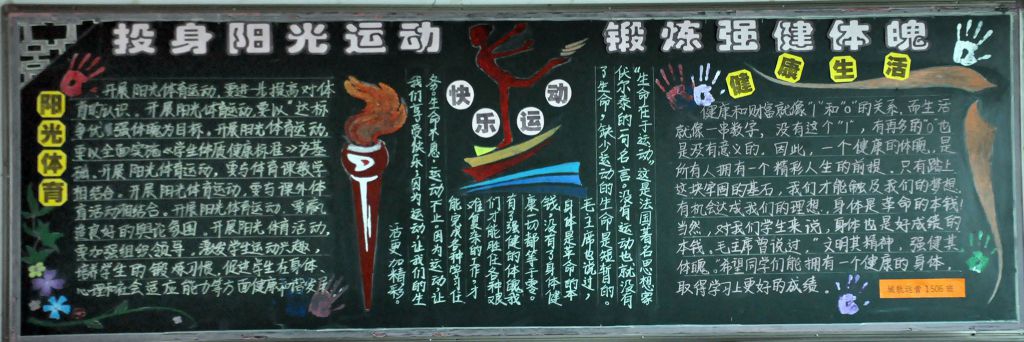 投身阳光运动
锻炼强健体魄
阳光体育
开展阳光体育运动,要进一步提高对体
育的认识。开展阳光体育运动,要以"达标
争优、强体魄为目标。开展阳光体育运动,
要以全面实施《学生体质健康标准》为基
础。开展阳光体育运动,要与体育课教学
相结合。开展阳光体育运动,要与课外体
育活动相结合。开展阳光体育运动,要营
造良好的舆论氛围。开展阳光体育活动,
要加强组织领导,激发学生运动兴趣,
培养学生的锻炼习惯,促进学生在身体、
心理和社会适应能力等方面健康和谐发展
快乐运动
"生命在于运动。这是法国著名思想家
伏尔泰的一句名言。没有运动也就没有
了生命,缺少运动的生命是短暂的。
毛主席也说过,
身体是革命的本
钱,没有了身体健
康一切都等于零。
有了强健的体魄我
们才能胜任各种艰
难复杂的工作,才
能完成各种学习任
务。生命不息,运动不止。因为运动让
我们享受快乐,因为运动让我们的生
活更加精彩。
健康生活
健康和财富就像"1"和"0"的关系,而生活
就像一串数字,没有这个"1",有再多的"0"也
是没有意义的。因此,一个健康的体魄,是
所有人拥有一个精彩人生的前提。只有踏上
这块牢固的基石,我们才能触及我们的梦想,
有机会达成我们的理想,身体是革命的本钱!
当然,对我们学生来说,身体也是好成绩的
本钱。毛主席曾说过,"文明其精神,强健其
体魄。"希望同学们能拥有一个健康的身体,
取得学习上更好的成绩。
1506班